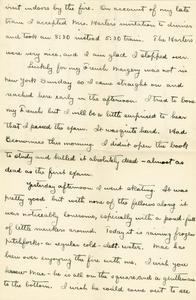 visit indoors by the fire. On account of my late
train I accepted Mrs. Harlers invitation to dinner
and took an 8:30 instead 5:30 train. The Harlers
were very nice, and I am glad I stopped over.
Luckily for my French Margery was not in
New York Sunday so I came straight on and
reached here early in the afternoon. I tried to bone
my French but I will be a little surprised to hear
that I passed the exam. It was quite hard. Had
Economics this morning. I didn't open the book
to study and killed it absolutely dead - almost as
dead as the first exam.
Yesterday afternoon I went skating. It was
pretty good but with none of the fellows along it
was noticeably lonesome, especially with a pond-full
of little muckers around. Today it is raining frozen
pitchforks - a regular cold - wet winter. Mac has
been over enjoying the fire with me. I wish you
knew Mac - he is all on the square, and a gentleman
to the bottom. I wish he could come out to see